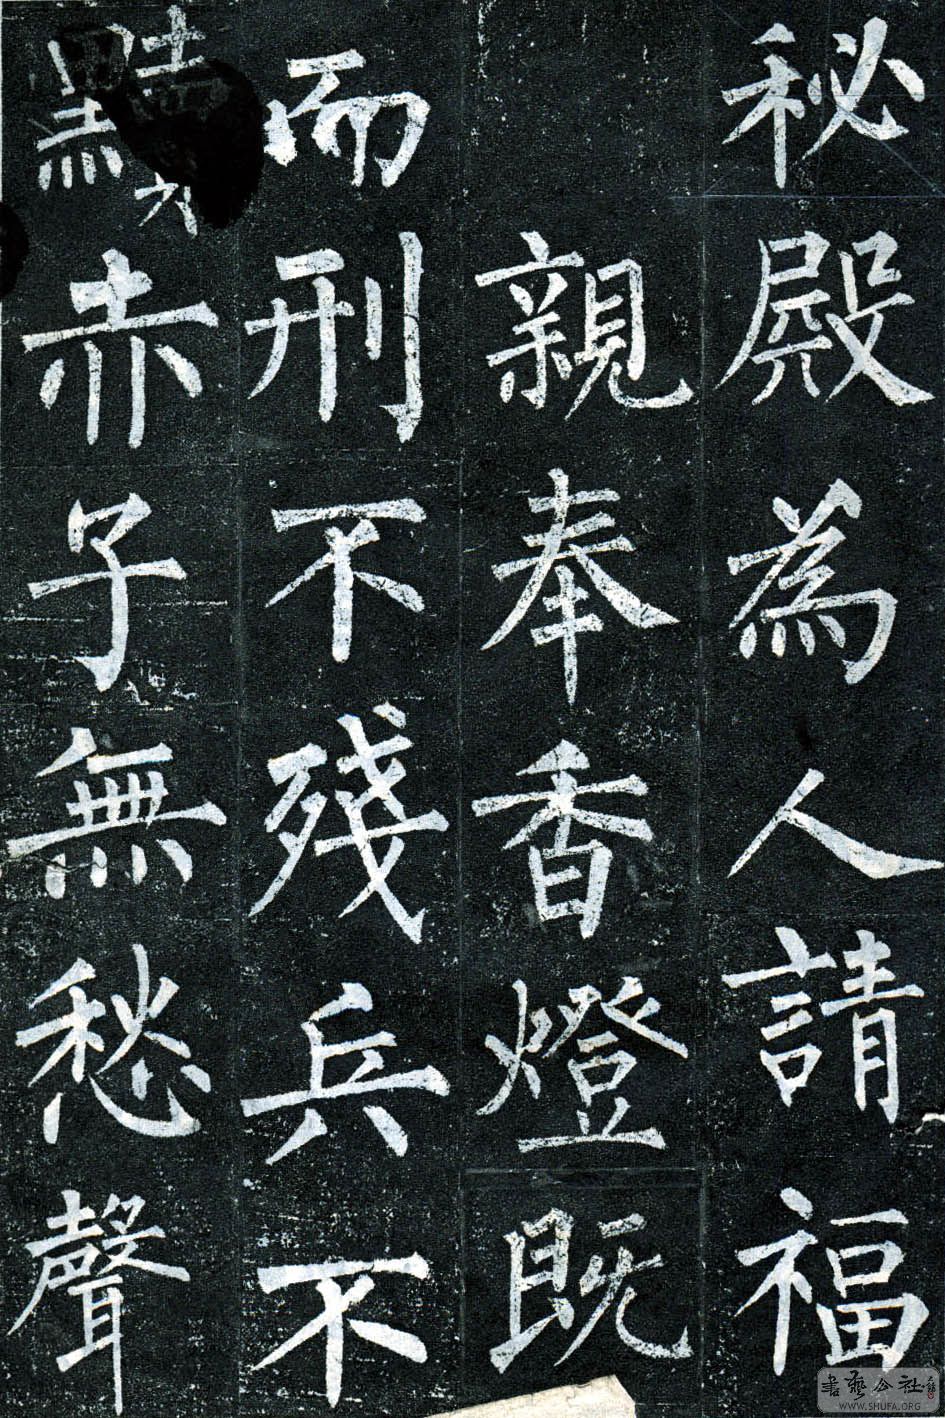 秘殿為人請福
親奉香燈既
而刑不殘兵不
黷赤子無愁聲
書藝公社
WWW.SHUFA.ORG